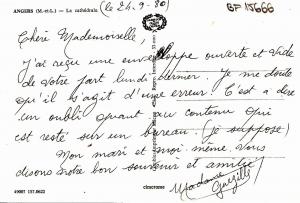 ANGERS (M.-et-L.) — La cathédrale
(le 24.9.80)
BP 15666
Chère Mademoiselle,
J'ai reçu une enveloppe ouverte et vide
de votre part lundi dernier. Je me doute
qu'il s'agit d'une erreur. C'est à dire
un oubli quant au contenu qui
est resté sur un bureau. (je suppose)
Mon mari et moi-même, vous
disons notre bon souvenir et amitié
Madame
49007 157.0622
cimcrome